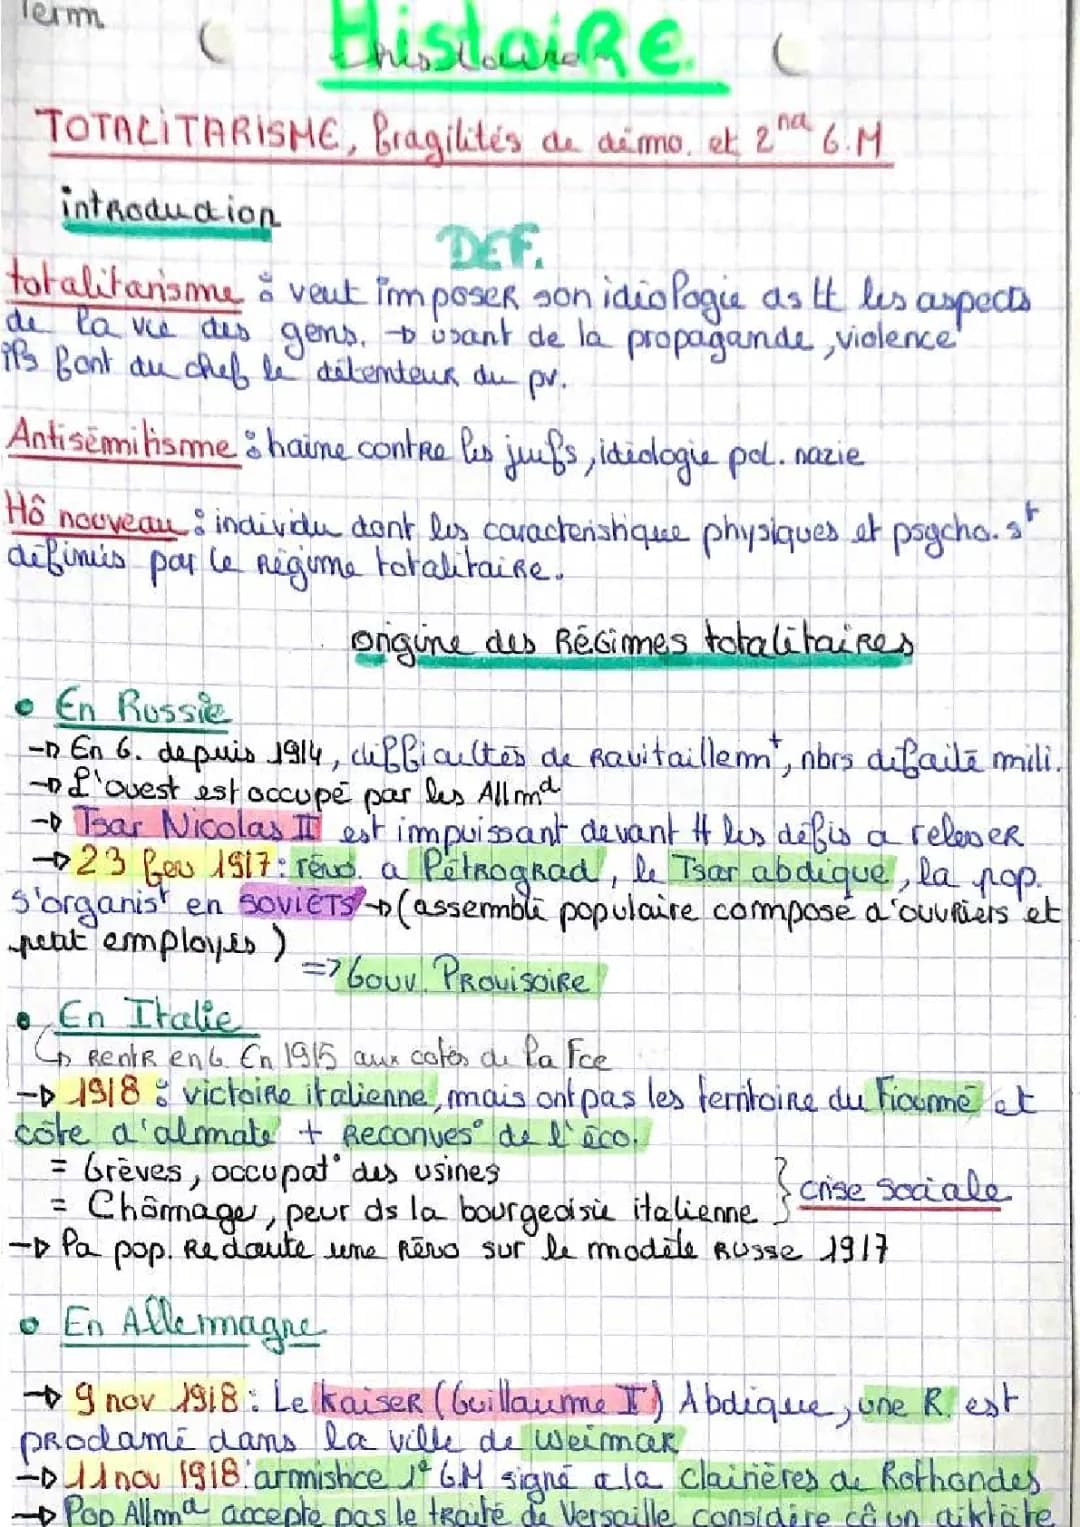 Term
Histoire
histoire
TOTALITARISME, fragilités de démo. et 2nd G.M
introduction
DEF.
totalitarisme : veut imposer son idéologie ds tt les aspects
de la vie des gens. → usant de la propagande, violence
ils font du chef le détenteur du pv.
Antisémitisme : haine contre les juifs, idéologie pol. nazie
Hô nouveau : individu dont les caractéristique physiques et psycho. st
définis par le régime totalitaire.
origine des Régimes totalitaires
• En Russie
→ En G. depuis 1914, difficultés de Ravitaillemt, nbrs défaite mili.
→ L'ouest est occupé par les Allmd
→ Tsar Nicolas II est impuissant devant tt les défis a relever
→ 23 fev 1917 : révo. a Pétrograd, le Tsar abdique, la pop.
s'organist en SOVIETS → (assemblé populaire composé d'ouvriers et
petit employés)
=> Gouv. Provisoire
• En Italie
↳ Rentr en G. En 1915 aux cotés de la Fce
→ 1918 : victoire italienne, mais ont pas les territoire du Fioumé et
côte d'almate + Reconves° de l'éco.
= Grèves, occupat° des usines
= Chômage, peur ds la bourgeoisie italienne } crise sociale
→ la pop. Redoute une Révo sur le modèle Russe 1917
• En Allemagne
→ 9 nov 1918 : Le Kaiser (Guillaume I) Abdique, une R. est
proclamé dans la ville de Weimar
→ 11 nov 1918 : armistice 1e G.M signé a la Clairières de Rothondes
→ Pop Allmd accepte pas le traité de Versaille considère cô un diktate